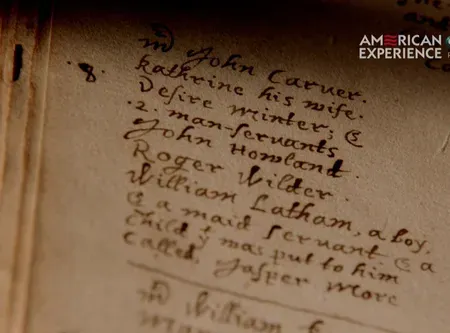 AMERICAN
EXPERIENCE
mr John Carver.
.8. kathrine his wife.
Desire minter; &
.2. man-servants
John Howland
Roger Wilder.
William Latham, a boy,
& a maid servant & a
child yt was put to him
called, Jasper More
mr William